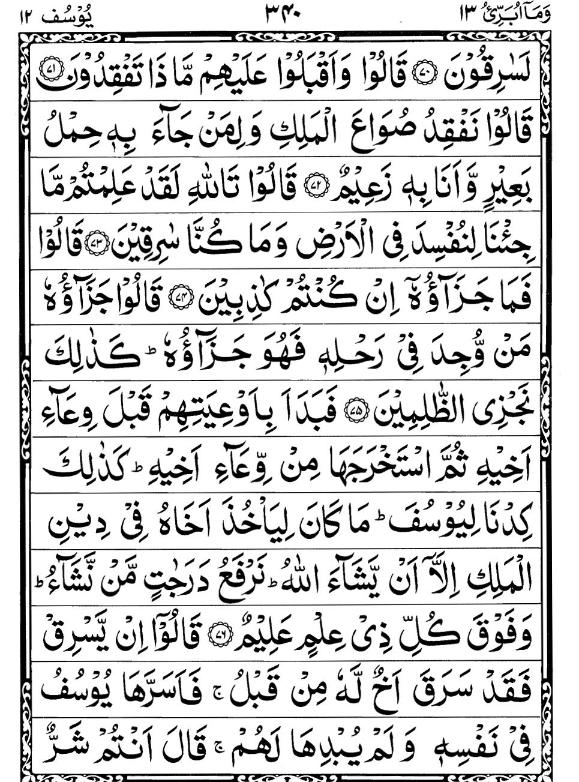 وَمَآ اُبَرِّئُ ١٣ ٣٤٠ يُوْسُف ١٢
لَسٰرِقُوْنَ ﴿٧٠﴾ قَالُوْا وَاَقْبَلُوْا عَلَيْهِمْ مَّا ذَا تَفْقِدُوْنَ ﴿٧١﴾
قَالُوْا نَفْقِدُ صُوَاعَ الْمَلِكِ وَلِمَنْ جَآءَ بِهٖ حِمْلُ
بَعِيْرٍ وَّاَنَا بِهٖ زَعِيْمٌ ﴿٧٢﴾ قَالُوْا تَاللّٰهِ لَقَدْ عَلِمْتُمْ مَّا
جِئْنَا لِنُفْسِدَ فِى الْاَرْضِ وَمَا كُنَّا سٰرِقِيْنَ ﴿٧٣﴾ قَالُوْا
فَمَا جَزَآؤُهٗۤ اِنْ كُنْتُمْ كٰذِبِيْنَ ﴿٧٤﴾ قَالُوْا جَزَآؤُهٗ
مَنْ وُّجِدَ فِىْ رَحْلِهٖ فَهُوَ جَزَآؤُهٗ ؕ كَذٰلِكَ
نَجْزِى الظّٰلِمِيْنَ ﴿٧٥﴾ فَبَدَاَ بِاَوْعِيَتِهِمْ قَبْلَ وِعَآءِ
اَخِيْهِ ثُمَّ اسْتَخْرَجَهَا مِنْ وِّعَآءِ اَخِيْهِ ؕ كَذٰلِكَ
كِدْنَا لِيُوْسُفَ ؕ مَا كَانَ لِيَاْخُذَ اَخَاهُ فِىْ دِيْنِ
الْمَلِكِ اِلَّاۤ اَنْ يَّشَآءَ اللّٰهُ ؕ نَرْفَعُ دَرَجٰتٍ مَّنْ نَّشَآءُ ؕ
وَفَوْقَ كُلِّ ذِىْ عِلْمٍ عَلِيْمٌ ﴿٧٦﴾ قَالُوْۤا اِنْ يَّسْرِقْ
فَقَدْ سَرَقَ اَخٌ لَّهٗ مِنْ قَبْلُ ۚ فَاَسَرَّهَا يُوْسُفُ
فِىْ نَفْسِهٖ وَلَمْ يُبْدِهَا لَهُمْ ۚ قَالَ اَنْتُمْ شَرٌّ